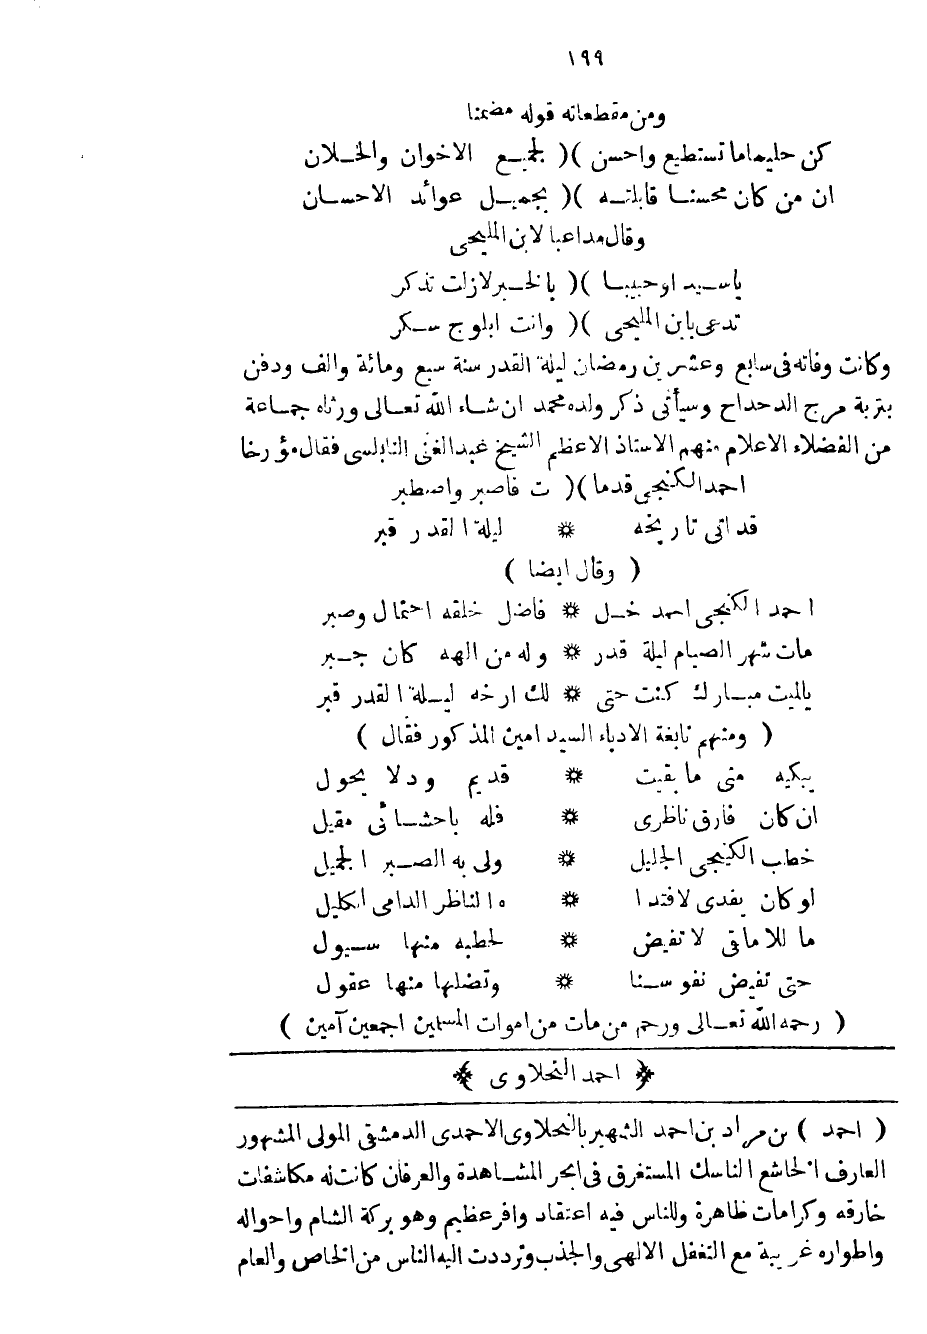 ١٩٩
ومن مقطعاته قوله مضمنا
كن حليماما تستطيع واحسن )( لجميع الاخوان والخلان
ان من كان محسنا قابلته )( بجميل عوائد الاحسان
وقال مداعبا لابن المليحى
ياسيد اوحبيبا )( بالخير لازلت تذكر
تدعى بابن المليحى )( وانت ابلوج سكر
وكانت وفاته فى سابع وعشرين رمضان ليلة القدر سنة سبع ومائة والف ودفن
بتربة مرج الدحداح وسيأتى ذكر ولده محمد ان شاء الله تعالى ورثاه جماعة
من الفضلاء الاعلام منهم الاستاذ الاعظم الشيخ عبدالغنى النابلسى فقال مؤرخا
احمد الكنجى قدما )( ت فاصبر واصطبر
قد اتى تاريخه ❊ ليلة القدر قبر
( وقال ايضا )
احمد الكنجى احمد خل ❊ فاضل خلقه احتمال وصبر
مات شهر الصيام ليلة قدر ❊ وله من الهه كان جبر
يالميت مبارك كنت حتى ❊ لك ارخه ليلة القدر قبر
( ومنهم نابغة الادباء السيد امين المذكور فقال )
يبكيه منى ما بقيت ❊ قديم ود لا يحول
ان كان فارق ناظرى ❊ فله باحشائى مقيل
خطب الكنجى الجليل ❊ ولى به الصبر الجميل
او كان يفدى لافتدا ❊ ه الناظر الدامى الكليل
ما للاماقى لا تفيض ❊ لخطبه منها سيول
حتى تفيض نفوسنا ❊ وتضلها منها عقول
( رحمه الله تعالى ورحم من مات من اموات المسلمين اجمعين آمين )
﴿ احمد النحلاوى ﴾
( احمد ) بن مراد بن احمد الشهير بالنحلاوى الاحمدى الدمشقى المولى المشهور
العارف الخاشع الناسك المستغرق فى ابحر المشاهدة والعرفان كانت له مكاشفات
خارقه وكرامات ظاهرة وللناس فيه اعتقاد وافر عظيم وهو بركة الشام واحواله
واطواره غريبة مع التغفل الالهى والجذب وترددت اليه الناس من الخاص والعام